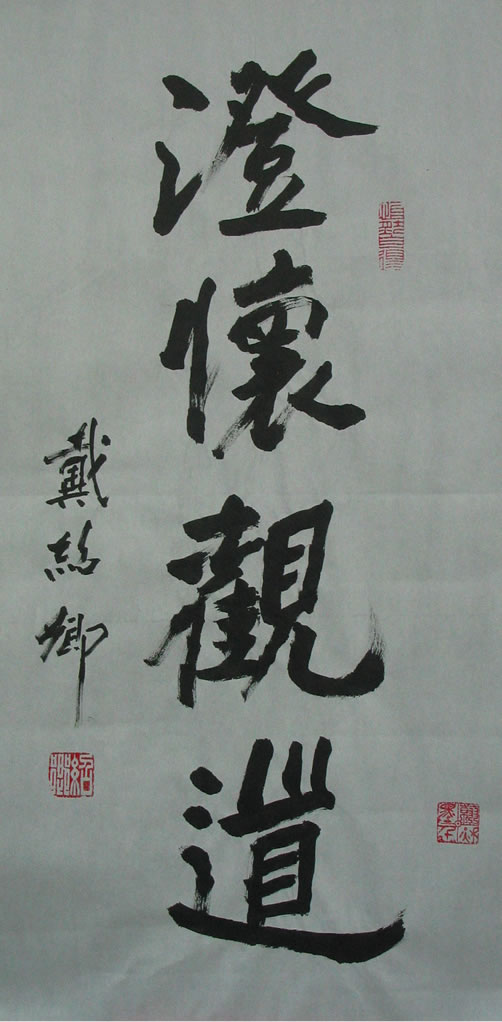 澄懷觀道
戴紹卿